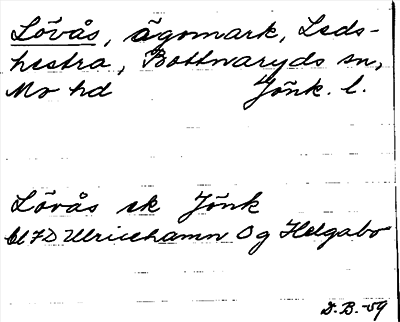 Lövås, ägomark, Leds-
hestra, Bottnaryds sn,
Mo hd Jönk. l.
Lövås sk Jönk
bl 7D Ulricehamn Og Helgabo
D.B.-59